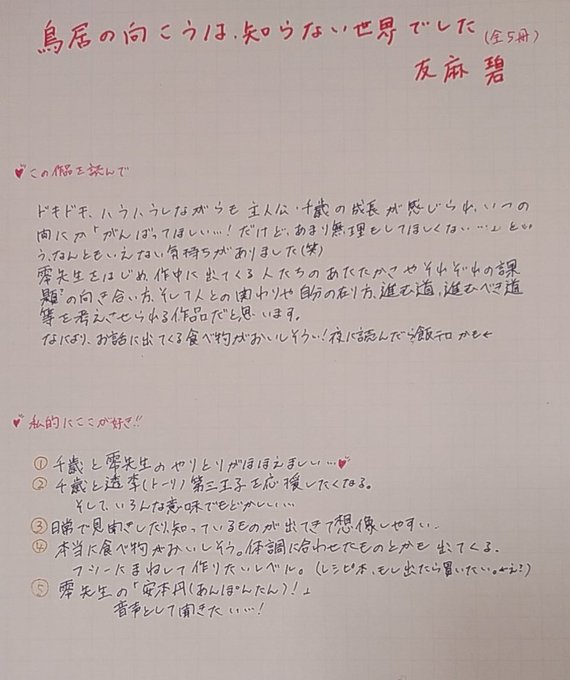 鳥居の向こうは、知らない世界でした(全5冊)
友麻 碧
この作品を読んで
ドキドキ、ハラハラしながらも主人公・千歳の成長が感じられ、いつの
間にか「がんばってほしい…!だけど、あまり無理もしてほしくない…」とい
う、なんともいえない気持ちがありました(笑)
零先生をはじめ、作中に出てくる人たちのあたたかさやそれぞれの課
題への向き合い方、そして人との関わりや自分の在り方、進む道、進むべき道
等を考えさせられる作品だと思います。
なにより、お話に出てくる食べ物がおいしそうい!夜に読んだら飯テロかも←
私的にここが好き!!
① 千歳と零先生のやりとりがほほえましい…
② 千歳と透李(トーリ)第三王子を応援したくなる。
そして、いろんな意味でもどかしい…
③ 日常で見聞きしたり、知っているものが出てきて想像しやすい。
④ 本当に食べ物がおいしそう。体調に合わせたものとかも出てくる。
フツーにまねして作りたいレベル。(レシピ本、もし出たら買いたい。←え?)
⑤ 零先生の「安本丹(あんぽんたん)!」
音声として聞きたい…!